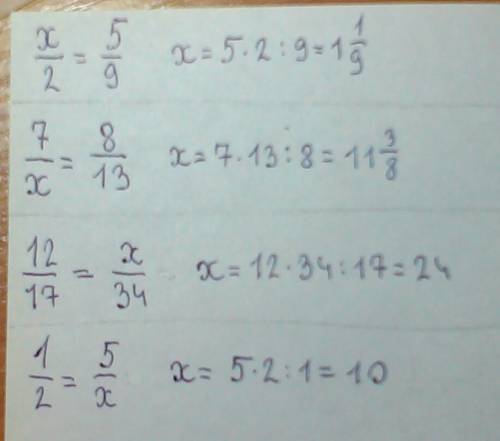 x/2 = 5/9 x = 5·2:9 = 1 1/9
7/x = 8/13 x = 7·13:8 = 11 3/8
12/17 = x/34 x = 12·34:17 = 24
1/2 = 5/x x = 5·2:1 = 10